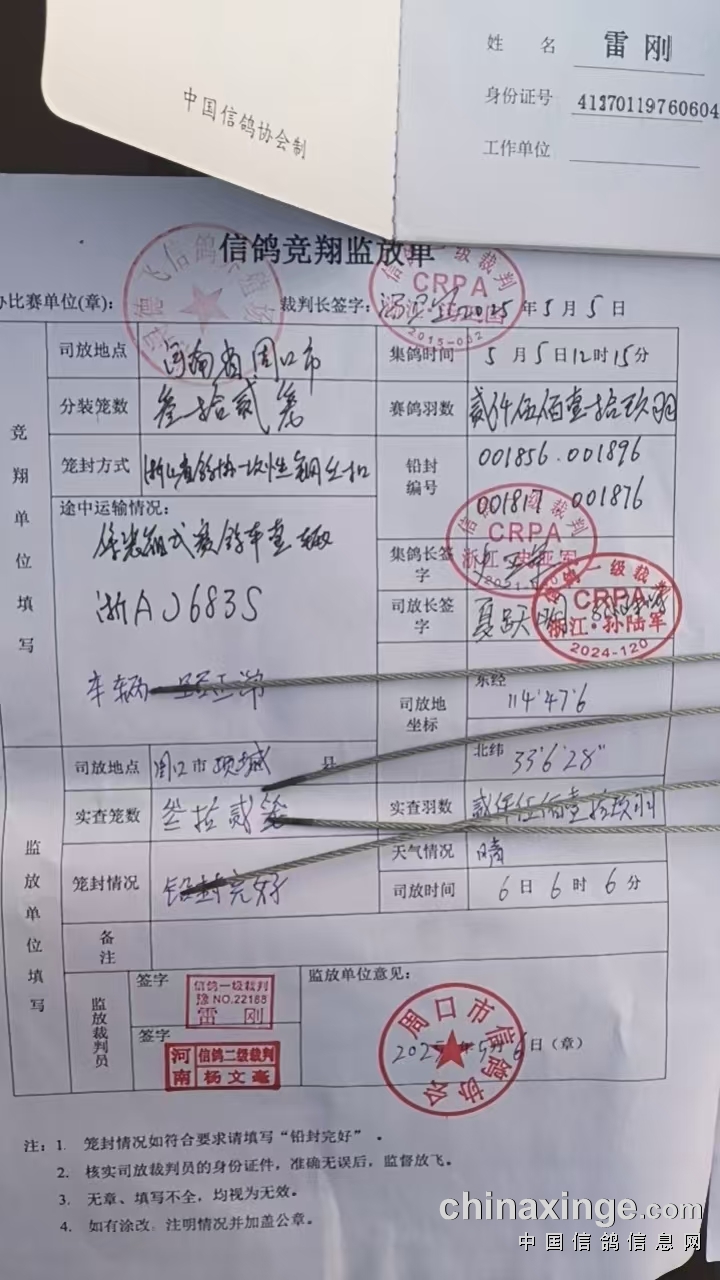 中国信鸽协会制
姓 名 雷刚
身份证号 41270119760604
工作单位
信鸽竞翔监放单
办比赛单位(章): 裁判长签字: 2025年5月5日
信鸽一级裁判
CRPA
2015-032
竞翔单位填写
司放地点 河南省周口市 集鸽时间 5月5日12时15分
分装笼数 叁拾贰笼 赛鸽羽数 贰仟伍佰壹拾玖羽
笼封方式 浙江省鸽协一次性钢丝扣 铅封编号 001856.001896
001817 001876
途中运输情况:
赛鸽车壹辆
浙AJ683S
车辆一路正常
集鸽长签字
信鸽一级裁判
CRPA
司放长签字 夏跃明
信鸽一级裁判
CRPA
浙江·孙陆军
2024-120
司放地坐标 东经 114°47'6
北纬 33°6'28"
监放单位填写
司放地点 周口市项城县
实查笼数 叁拾贰笼 实查羽数 贰仟伍佰壹拾玖羽
笼封情况 铅封完好 天气情况 晴
司放时间 6日6时6分
备注
监放裁判员
签字 信鸽一级裁判
豫NO.22188
雷 刚
签字 河南 信鸽二级裁判
杨文毫
监放单位意见:
周口市信鸽协会
2025年5月6日(章)
注: 1. 笼封情况如符合要求请填写“铅封完好”。
2. 核实司放裁判员的身份证件，准确无误后，监督放飞。
3. 无章、填写不全，均视为无效。
4. 如有涂改，注明情况并加盖公章。
chinaxinge.com
中国信鸽信息网